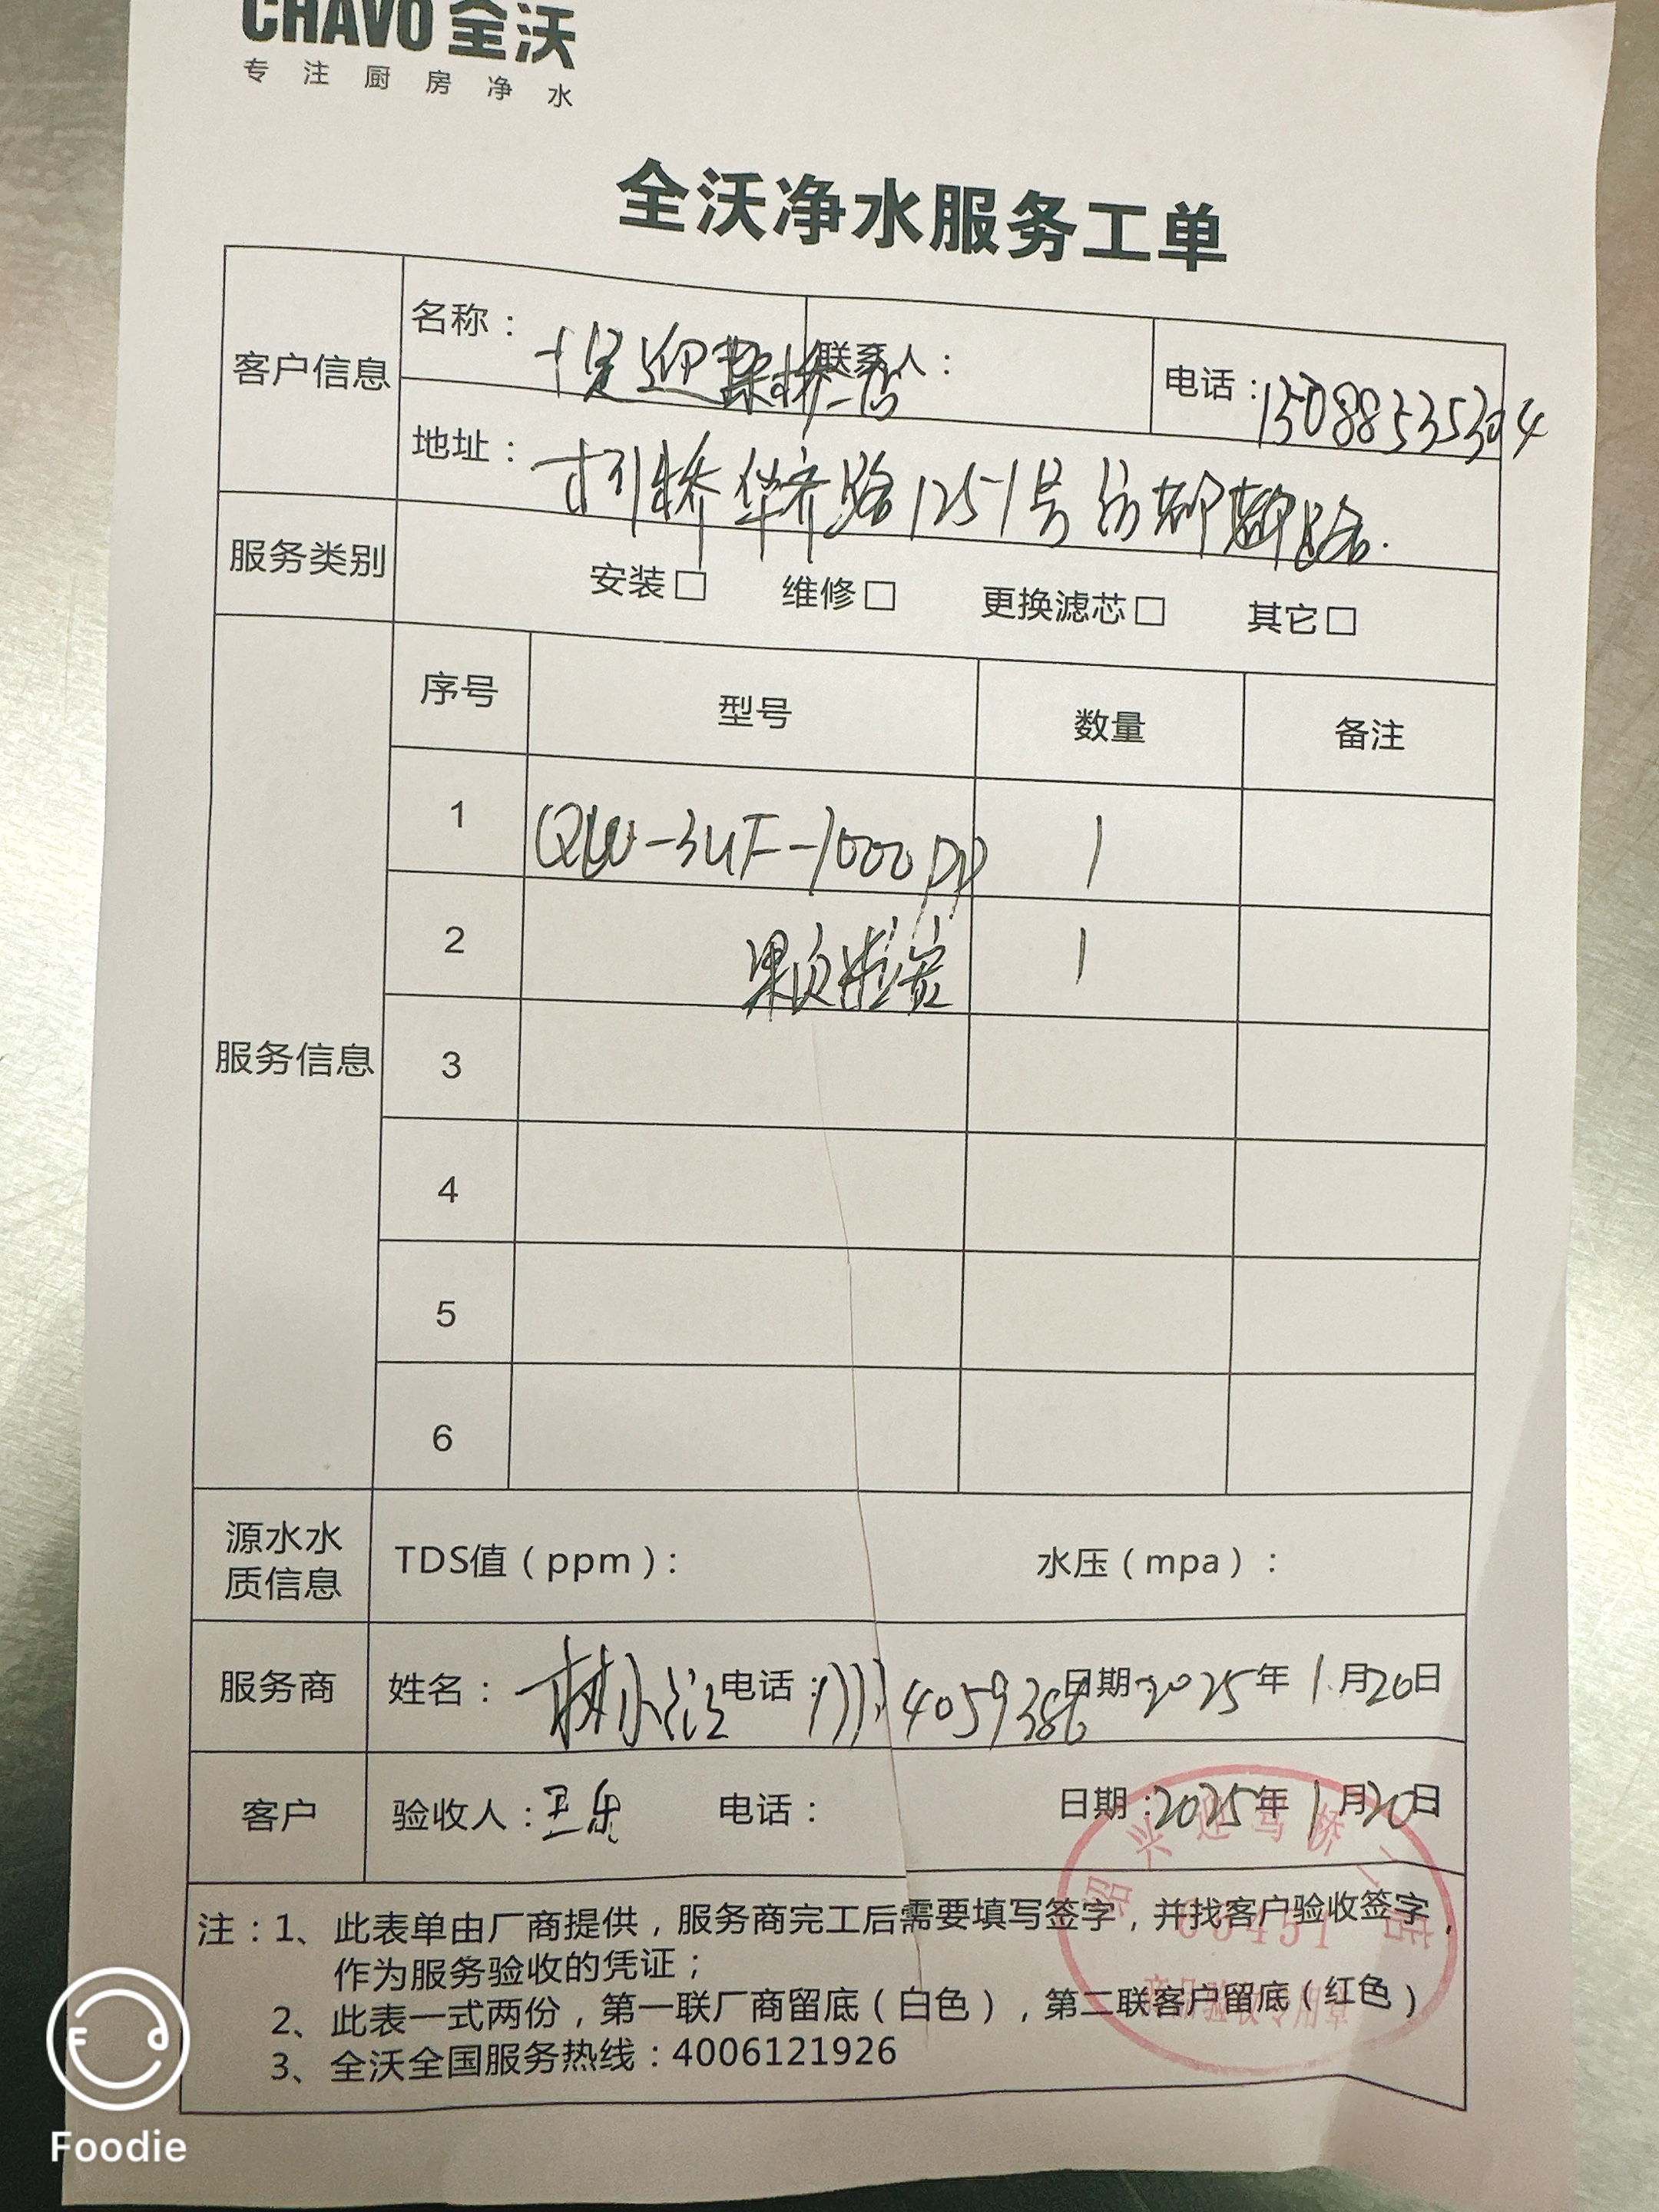 CHAVO 全沃
专注厨房净水
全沃净水服务工单
客户信息
名称：
联系人：
电话：
地址：柯桥华齐路1251号
服务类别
安装□ 维修□ 更换滤芯□ 其它□
服务信息
序号 型号 数量 备注
1 QW-3UF-1000 1
2 1
3
4
5
6
源水水质信息
TDS值（ppm）： 水压（mpa）：
服务商 姓名：林 电话： 日期：2025年1月20日
客户 验收人：王乐 电话： 日期：2025年1月20日
注：1、此表单由厂商提供，服务商完工后需要填写签字，并找客户验收签字，
作为服务验收的凭证；
2、此表一式两份，第一联厂商留底（白色），第二联客户留底（红色）
3、全沃全国服务热线：4006121926
Foodie